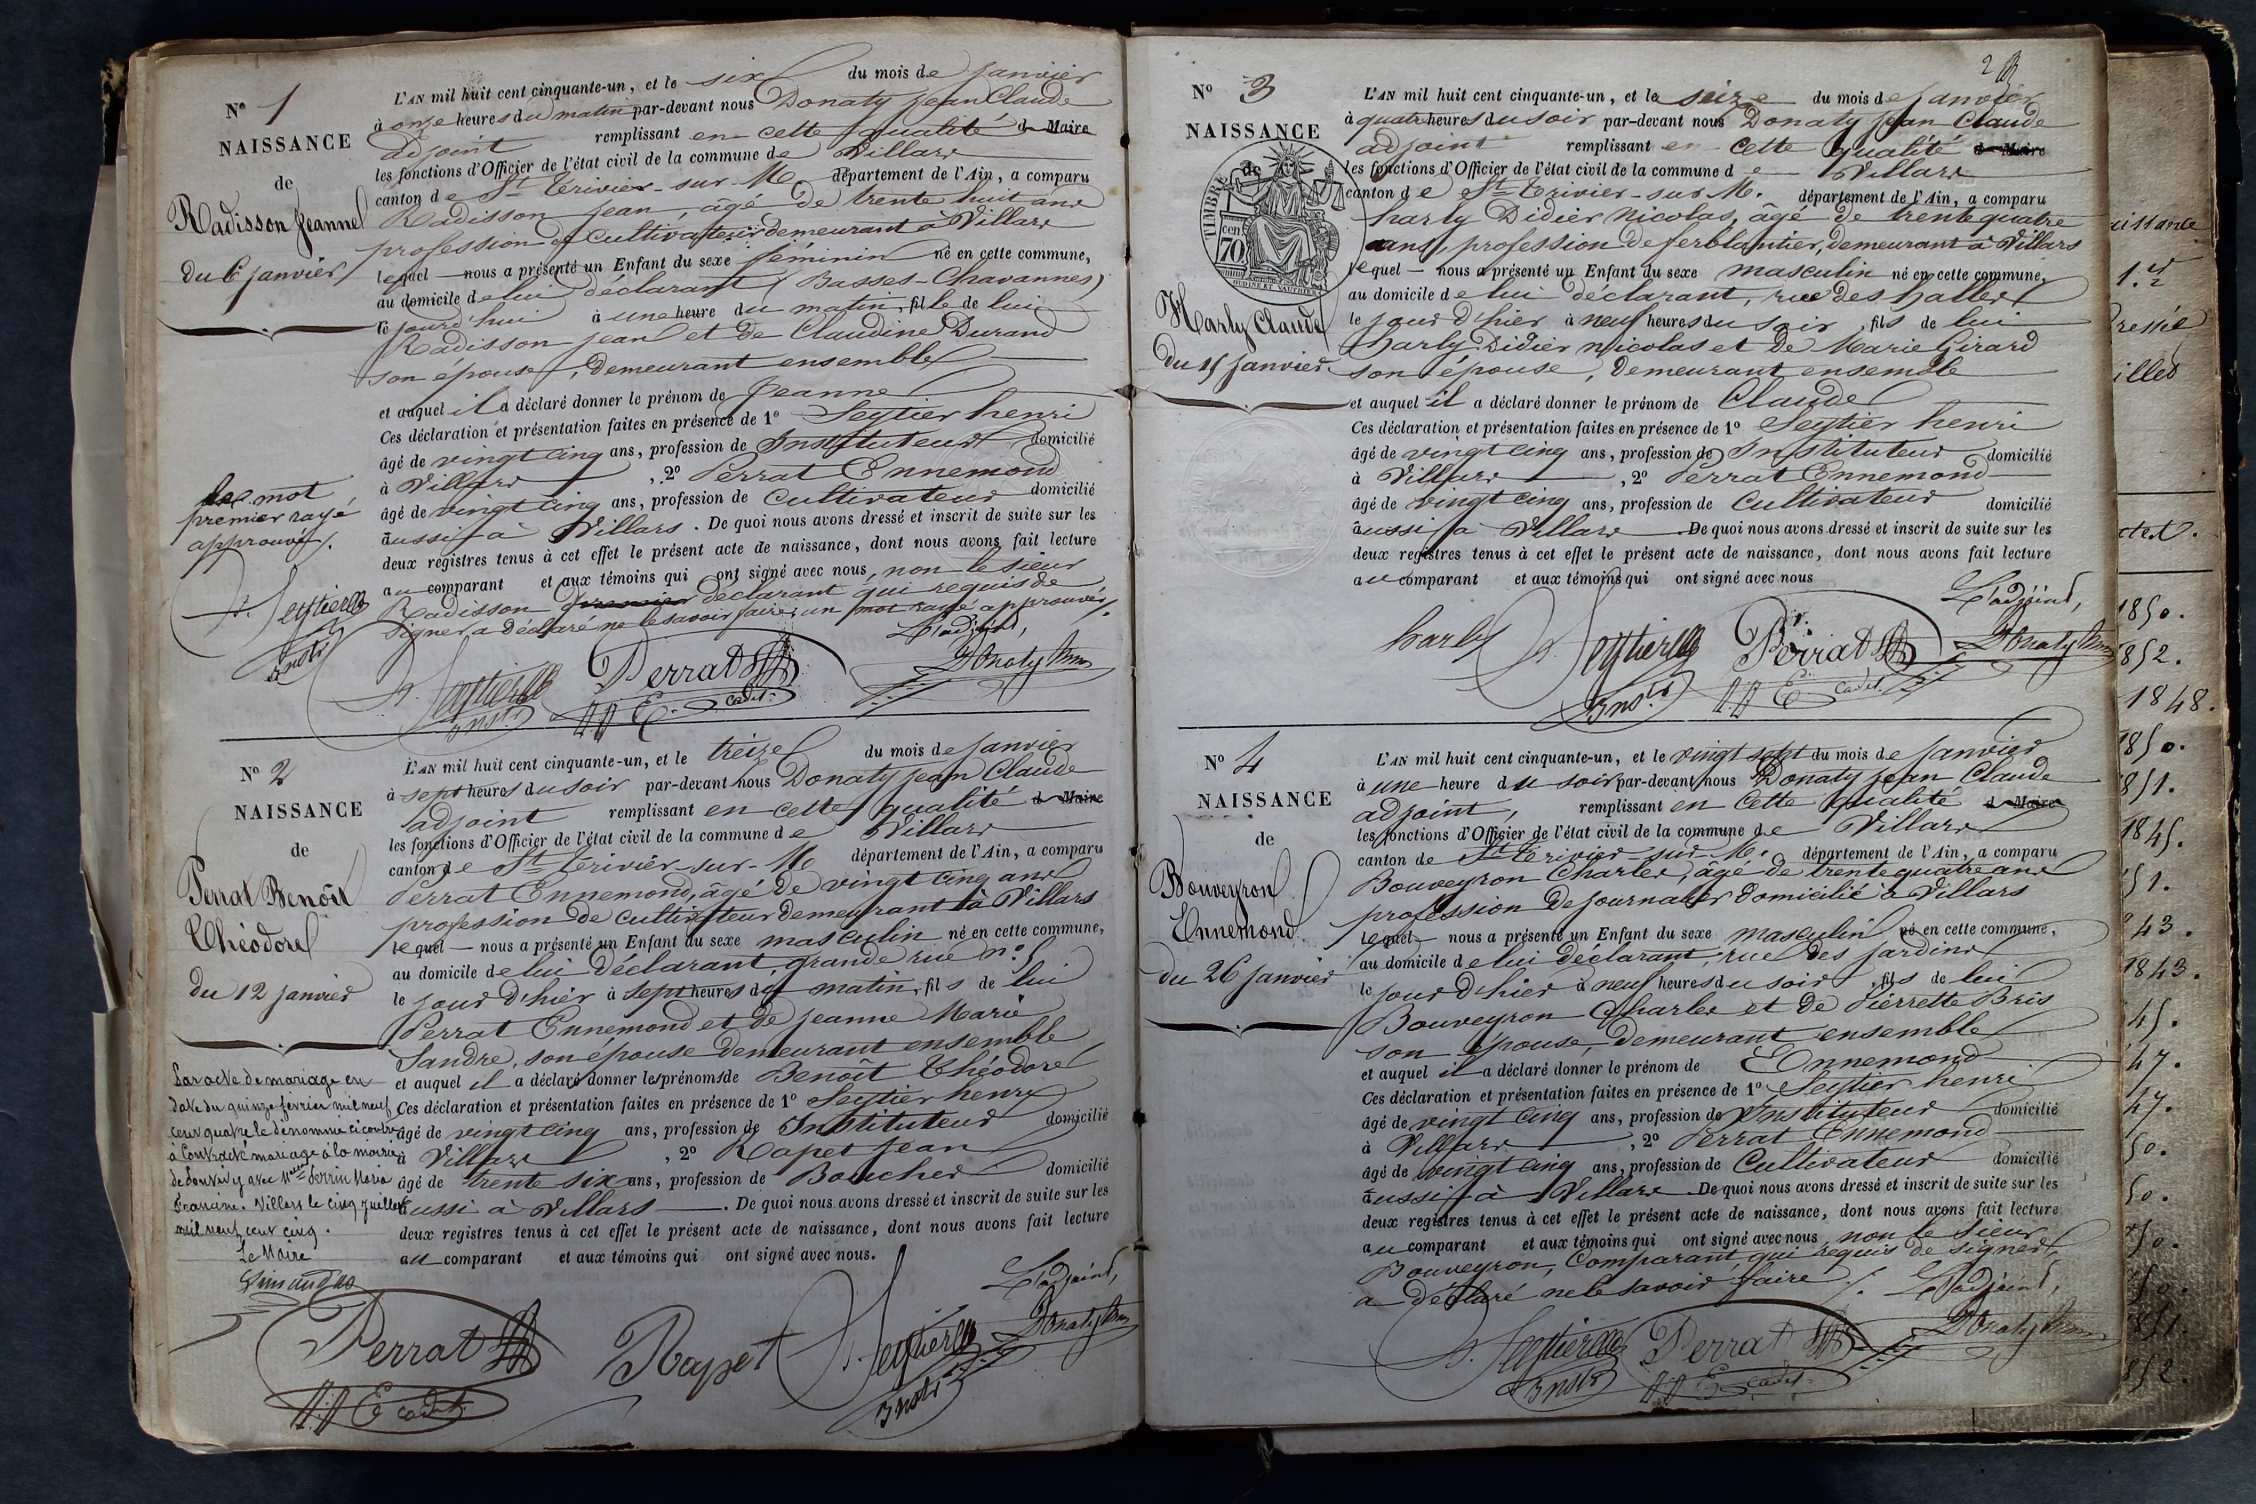 N° 1
NAISSANCE
de
Radisson Jeanne
du 6 janvier
L'AN mil huit cent cinquante-un, et le six du mois de janvier
à onze heures du matin par-devant nous Donaty Jean Claude
adjoint remplissant en cette qualité d Maire
les fonctions d'Officier de l'état civil de la commune de Villars
canton de St Trivier-sur-M département de l'Ain, a comparu
Radisson Jean, âgé de trente huit ans
profession de cultivateur demeurant à Villars
lequel nous a présenté un Enfant du sexe féminin né en cette commune,
au domicile de lui déclarant (Basses-Chavannes)
ce jourd'hui à une heure du matin, fille de lui
Radisson Jean et de Claudine Durand
son épouse, demeurant ensemble
et auquel il a déclaré donner le prénom de Jeanne
Ces déclaration et présentation faites en présence de 1° Seytier henri
âgé de vingt cinq ans, profession de Instituteur domicilié
à Villars, 2° Perrat Ennemond
âgé de vingt cinq ans, profession de cultivateur domicilié
aussi à Villars. De quoi nous avons dressé et inscrit de suite sur les
deux registres tenus à cet effet le présent acte de naissance, dont nous avons fait lecture
au comparant et aux témoins qui ont signé avec nous, non le sieur
Radisson premier déclarant qui requis de
signer a déclaré ne le savoir faire, un mot rayé approuvé.
L'adjoint,
le mot
premier rayé
approuvé.
h. Seytier
Instr
h. Seytier
Instr
Perrat
E. cadet.
Donaty
N° 2
NAISSANCE
de
Perrat Benoît
Théodore
du 12 janvier
L'AN mil huit cent cinquante-un, et le treize du mois de janvier
à sept heures du soir par-devant nous Donaty Jean Claude
adjoint remplissant en cette qualité d Maire
les fonctions d'Officier de l'état civil de la commune de Villars
canton de St Trivier-sur-M département de l'Ain, a comparu
Perrat Ennemond, âgé de vingt cinq ans
profession de cultivateur demeurant à Villars
lequel nous a présenté un Enfant du sexe masculin né en cette commune,
au domicile de lui déclarant, grande rue n° 5
le jour d'hier à sept heures du matin, fils de lui
Perrat Ennemond et de Jeanne Marie
Sandre, son épouse demeurant ensemble
et auquel il a déclaré donner les prénoms de Benoît Théodore
Ces déclaration et présentation faites en présence de 1° Seytier henry
âgé de vingt cinq ans, profession de Instituteur domicilié
à Villars, 2° Rapet Jean
âgé de trente six ans, profession de Boucher domicilié
aussi à Villars. De quoi nous avons dressé et inscrit de suite sur les
deux registres tenus à cet effet le présent acte de naissance, dont nous avons fait lecture
au comparant et aux témoins qui ont signé avec nous.
L'adjoint,
Par acte de mariage en
date du quinze février mil neuf
cent quatre le dénommé ci contre
à contracté mariage à la mairie
de avec Melle Perrin Maria
Francine. Villars le cinq juillet
mil neuf cent cinq.
Le Maire
Perrat
E cadet.
Rapet
h. Seytier
Instr
Donaty
2
N° 3
NAISSANCE
de
TIMBRE
70 cen
Harly Claude
du 15 janvier
L'AN mil huit cent cinquante-un, et le seize du mois de janvier
à quatre heures du soir par-devant nous Donaty Jean Claude
adjoint remplissant en cette qualité d Maire
les fonctions d'Officier de l'état civil de la commune de Villars
canton de St Trivier-sur-M. département de l'Ain, a comparu
harly Didier Nicolas, âgé de trente quatre
ans, profession de ferblantier, demeurant à Villars
lequel nous a présenté un Enfant du sexe masculin né en cette commune,
au domicile de lui déclarant, rue des halles
le jour d'hier à neuf heures du soir, fils de lui
harly Didier Nicolas et de Marie Girard
son épouse, demeurant ensemble
et auquel il a déclaré donner le prénom de Claude
Ces déclaration et présentation faites en présence de 1° Seytier henri
âgé de vingt cinq ans, profession de Instituteur domicilié
à Villars, 2° Perrat Ennemond
âgé de vingt cinq ans, profession de cultivateur domicilié
aussi à Villars De quoi nous avons dressé et inscrit de suite sur les
deux registres tenus à cet effet le présent acte de naissance, dont nous avons fait lecture
au comparant et aux témoins qui ont signé avec nous
L'adjoint,
harly
h. Seytier
Instr
Perrat
E. cadet.
Donaty
N° 4
NAISSANCE
de
Bouveyron
Ennemond
du 26 janvier
L'AN mil huit cent cinquante-un, et le vingt sept du mois de janvier
à une heure du soir par-devant nous Donaty Jean Claude
adjoint, remplissant en cette qualité d Maire
les fonctions d'Officier de l'état civil de la commune de Villars
canton de St Trivier-sur-M. département de l'Ain, a comparu
Bouveyron Charles, âgé de trente quatre ans
profession de journalier domicilié à Villars
lequel nous a présenté un Enfant du sexe masculin né en cette commune,
au domicile de lui déclarant, rue des jardins
le jour d'hier à neuf heures du soir, fils de lui
Bouveyron Charles et de Pierrette Bris
son épouse, demeurant ensemble
et auquel il a déclaré donner le prénom de Ennemond
Ces déclaration et présentation faites en présence de 1° Seytier henri
âgé de vingt cinq ans, profession de Instituteur domicilié
à Villars, 2° Perrat Ennemond
âgé de vingt cinq ans, profession de Cultivateur domicilié
aussi à Villars De quoi nous avons dressé et inscrit de suite sur les
deux registres tenus à cet effet le présent acte de naissance, dont nous avons fait lecture
au comparant et aux témoins qui ont signé avec nous non le sieur
Bouveyron, Comparant, qui requis de signer,
a déclaré ne le savoir faire. L'adjoint,
h. Seytier
Instr
Perrat
E. cadet.
Donaty
1850.
1852.
1848.
1850.
1851.
1845.
51.
43.
1843.
45.
47.
47.
50.
50.
50.
50.
1851.
852.